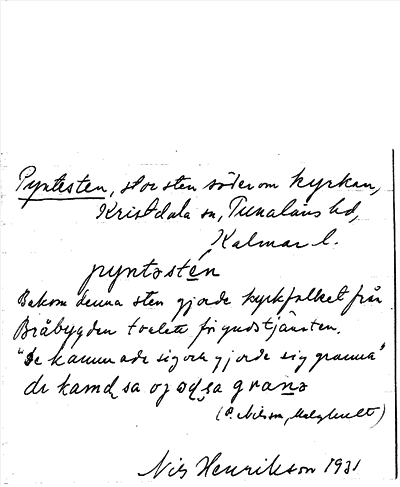 Pyntesten, stor sten söder om kyrkan,
Kristdala sn, Tunaläns hd,
Kalmar l.
pyntəstén
Bakom denna sten gjorde kyrkfolket från
Bråbygden toalett för gudstjänsten.
"De kammade sig och gjorde sig granna"
di kamḍ sa og
(P. Nilson,
Nils Henrikson 1931